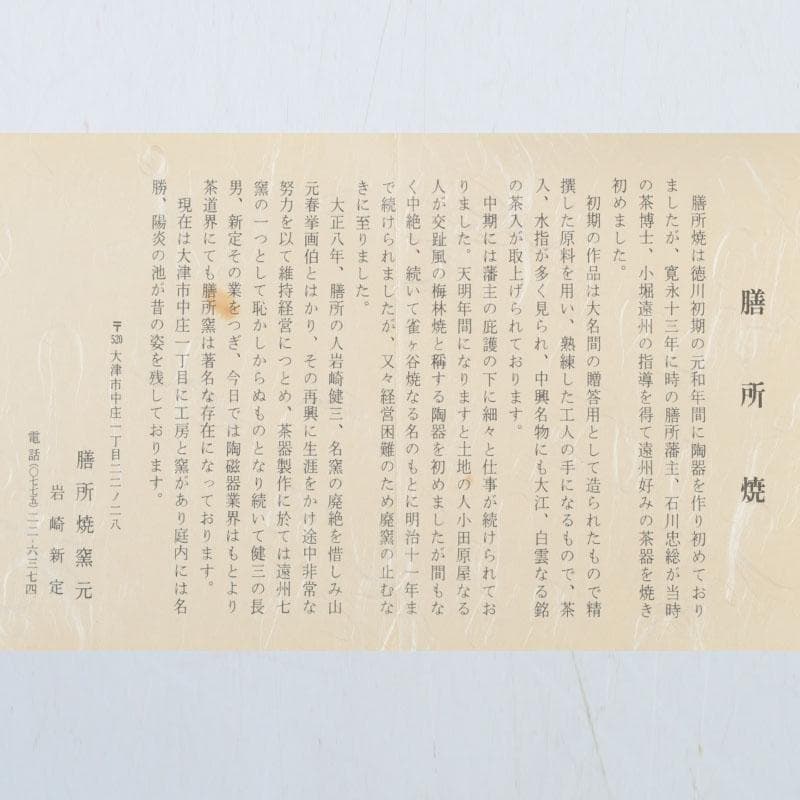 膳所焼
膳所焼は徳川初期の元和年間に陶器を作り初めており
ましたが、寛永十三年に時の膳所藩主、石川忠総が当時
の茶博士、小堀遠州の指導を得て遠州好みの茶器を焼き
初めました。
初期の作品は大名間の贈答用として造られたもので精
撰した原料を用い、熟練した工人の手になるもので、茶
入、水指が多く見られ、中興名物にも大江、白雲なる銘
の茶入が取上げられております。
中期には藩主の庇護の下に細々と仕事が続けられてお
りました。天明年間になりますと土地の人小田原屋なる
人が交趾風の梅林焼と稱する陶器を初めましたが間もな
く中絶し、続いて雀ヶ谷焼なる名のもとに明治十一年ま
で続けられましたが、又々経営困難のため廃窯の止むな
きに至りました。
大正八年、膳所の人岩崎健三、名窯の廃絶を惜しみ山
元春挙画伯とはかり、その再興に生涯をかけ途中非常な
努力を以て維持経営につとめ、茶器製作に於ては遠州七
窯の一つとして恥かしからぬものとなり続いて健三の長
男、新定その業をつぎ、今日では陶磁器業界はもとより
茶道界にても膳所窯は著名な存在になっております。
現在は大津市中庄一丁目に工房と窯があり庭内には名
勝、陽炎の池が昔の姿を残しております。
〒520 大津市中庄一丁目二二ノ二八
膳所焼窯元
岩崎新定
電話(〇七七五)二二-六三七四